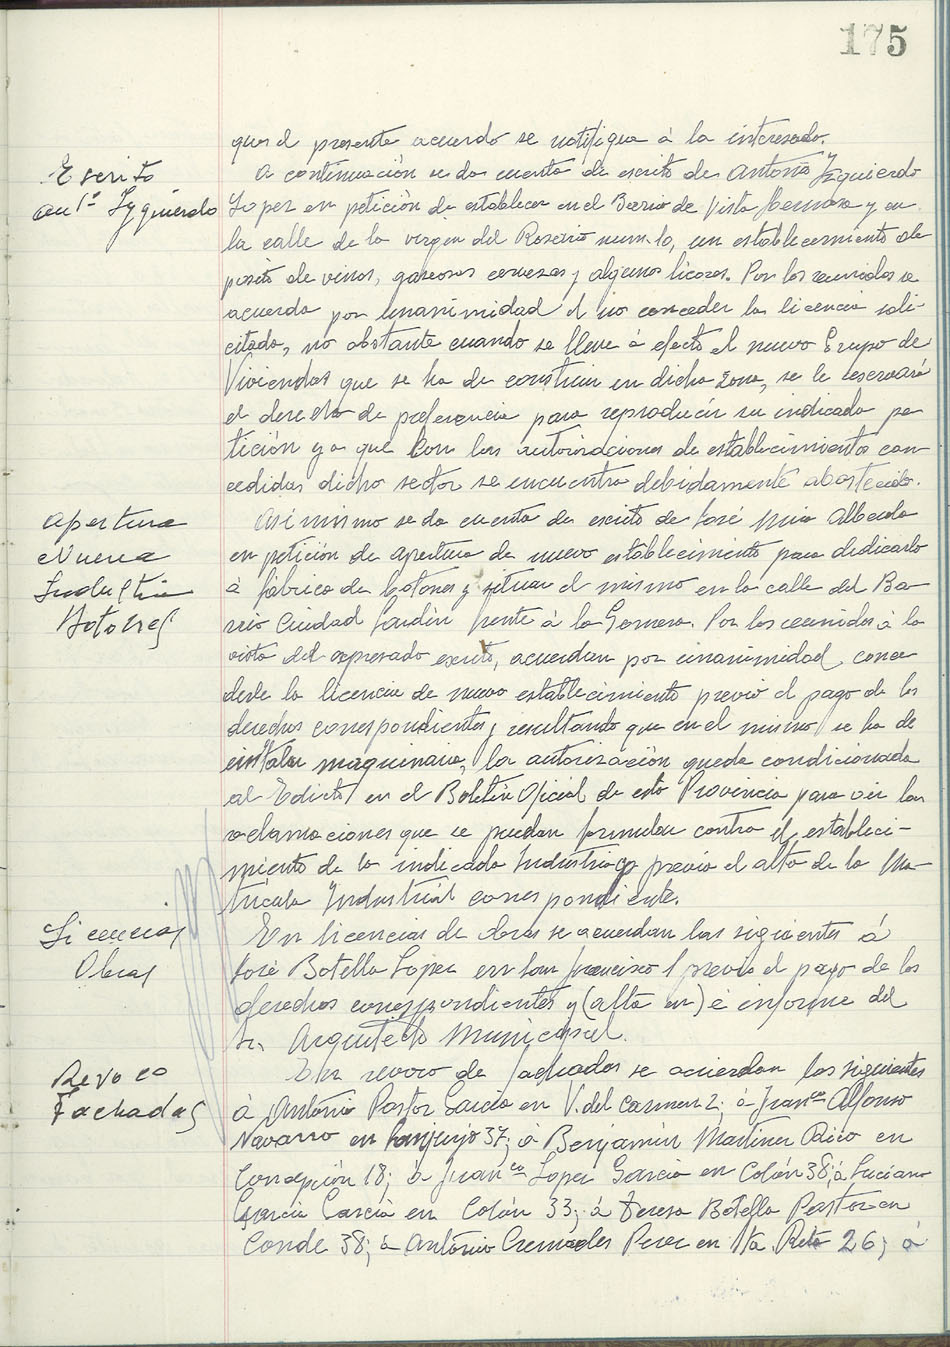 175
que el presente acuerdo se notifique á la interesada.
Escrito
Antº Yzquierdo
A continuación se da cuenta de escrito de Antonio Yzquierdo
Lopez en petición de establecer en el Barrio de Vista Hermosa y en
la calle de la virgen del Rosario num. 10, un establecimiento de
posito de vinos, gaseosas cervezas y algunos licores. Por los reunidos se
acuerda por unanimidad el no conceder la licencia soli-
citada, no obstante cuando se lleve á efecto el nuevo Grupo de
Viviendas que se ha de construir en dicha zona, se le reservará
el derecho de preferencia para reproducir su indicada pe
tición ya que con las autorizaciones de establecimientos con-
cedidas dicho sector se encuentra debidamente abastecido.
Apertura
Nueva
Industria
Botones
Asi mismo se da cuenta de escrito de José Mira Albeada
en petición de apertura de nuevo establecimiento para dedicarlo
á fábrica de botones y situar el mismo en la calle del Ba-
rrio Ciudad Jardin frente á la Gomera. Por los reunidos á la
vista del expresado escrito, acuerdan por unanimidad conce
derle la licencia de nuevo establecimiento previo el pago de los
derechos correspondientes y resultando que en el mismo se ha de
instalar maquinaria, la autorización queda condicionada
al Edicto en el Boletin Oficial de esta Provincia para ver las
reclamaciones que se puedan formular contra el estableci-
miento de la indicada Industria y previo el alta de la Ma-
trícula Industrial correspondiente.
Licencias
Obras
En licencias de obras se acuerdan las siguientes á
José Botella Lopez en San Francisco 1 previo el pago de los
derechos correspondientes y (alta en) é informe del
Sr. Arquitecto Municipal.
Revoco
Fachadas
En revoco de fachadas se acuerdan las siguientes
á Antonio Pastor Garcia en V. del Carmen 2; á Franco Alfonso
Navarro en Sanjurjo 37; á Benjamín Martinez Rico en
Concepción 18; á Franco Lopez Garcia en Colón 38; á Luciano
Garcia Garcia en Colón 33; á Teresa Botella Pastor en
Conde 38; á Antonio Cremades Perez en Sta. Rita 26; á